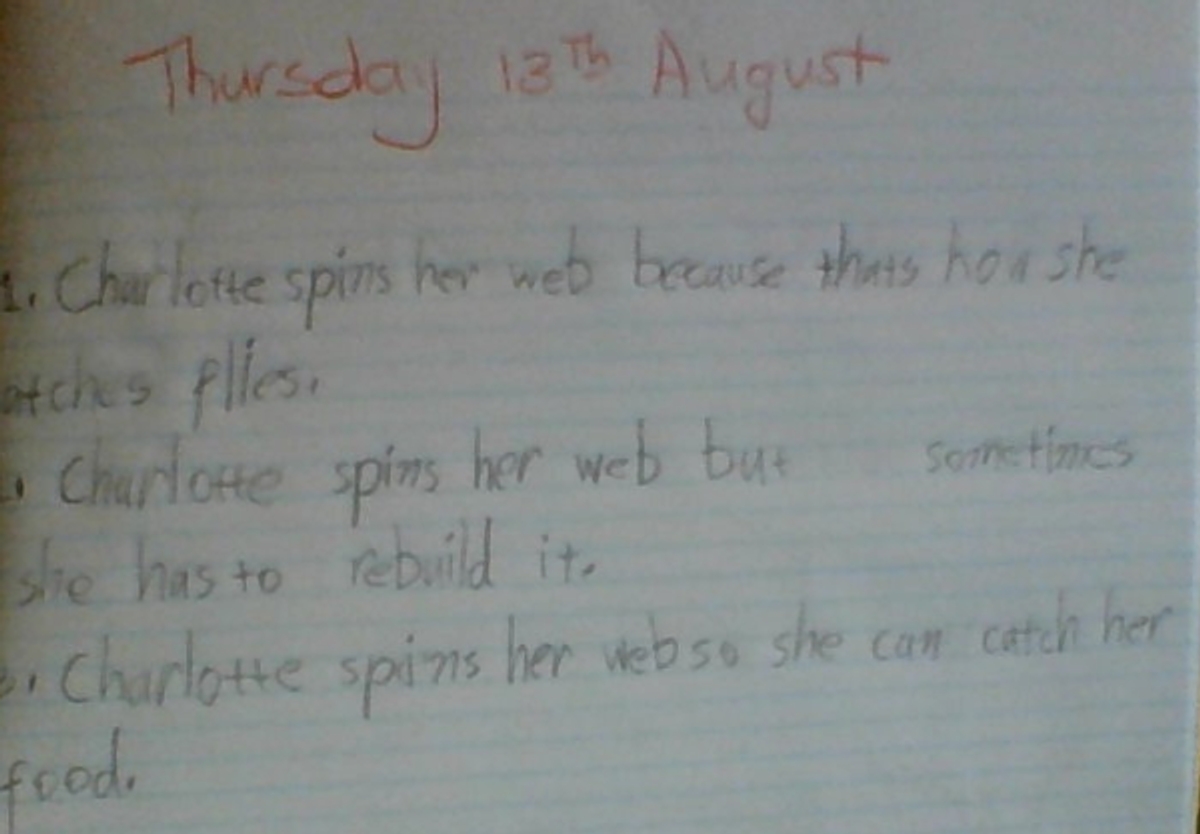 Thursday 13Th August
1. Charlotte spins her web because thats how she
atches flies.
. Charlotte spins her web but sometimes
she has to rebuild it.
. Charlotte spins her web so she can catch her
food.